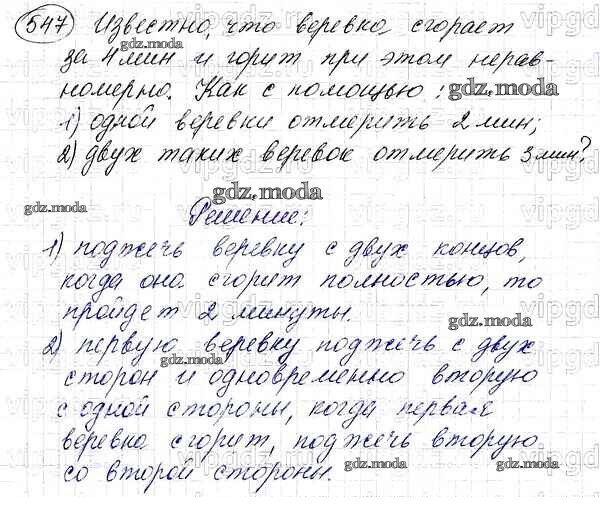 547 Известно, что веревка сгорает
за 4 мин и горит при этом нерав-
номерно. Как с помощью:
gdz.moda
1) одной веревки отмерить 2 мин;
2) двух таких веревок отмерить 3 мин?
gdz.moda
gdz.moda
Решение:
1) поджечь веревку с двух концов,
когда она сгорит полностью, то
пройдет 2 минуты.
gdz.moda
2) первую веревку поджечь с двух
gdz.moda
сторон и одновременно вторую
с одной стороны, когда первая
веревка сгорит, поджечь вторую
со второй стороны.
gdz.moda
gdz.moda